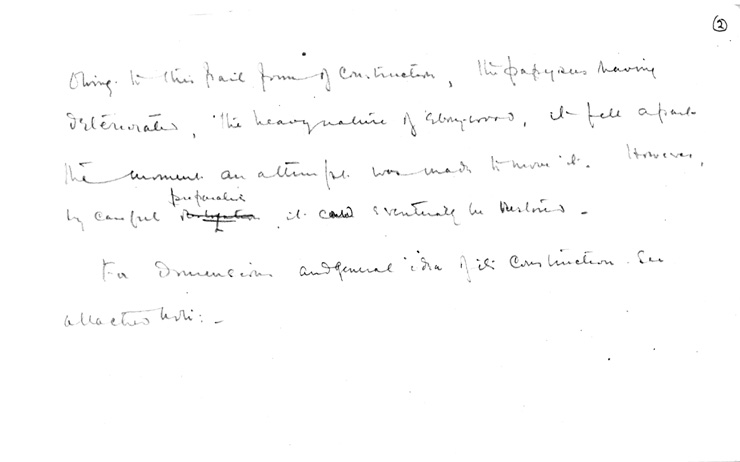 ②
Owing to this frail form of construction, the papyrus having
deteriorated, the heavy nature of ebony-wood, it fell apart
the moment an attempt was made to move it. However,
preparation
by careful it could eventually be restored. -
For Dimensions and general idea of its construction See
attached note: -